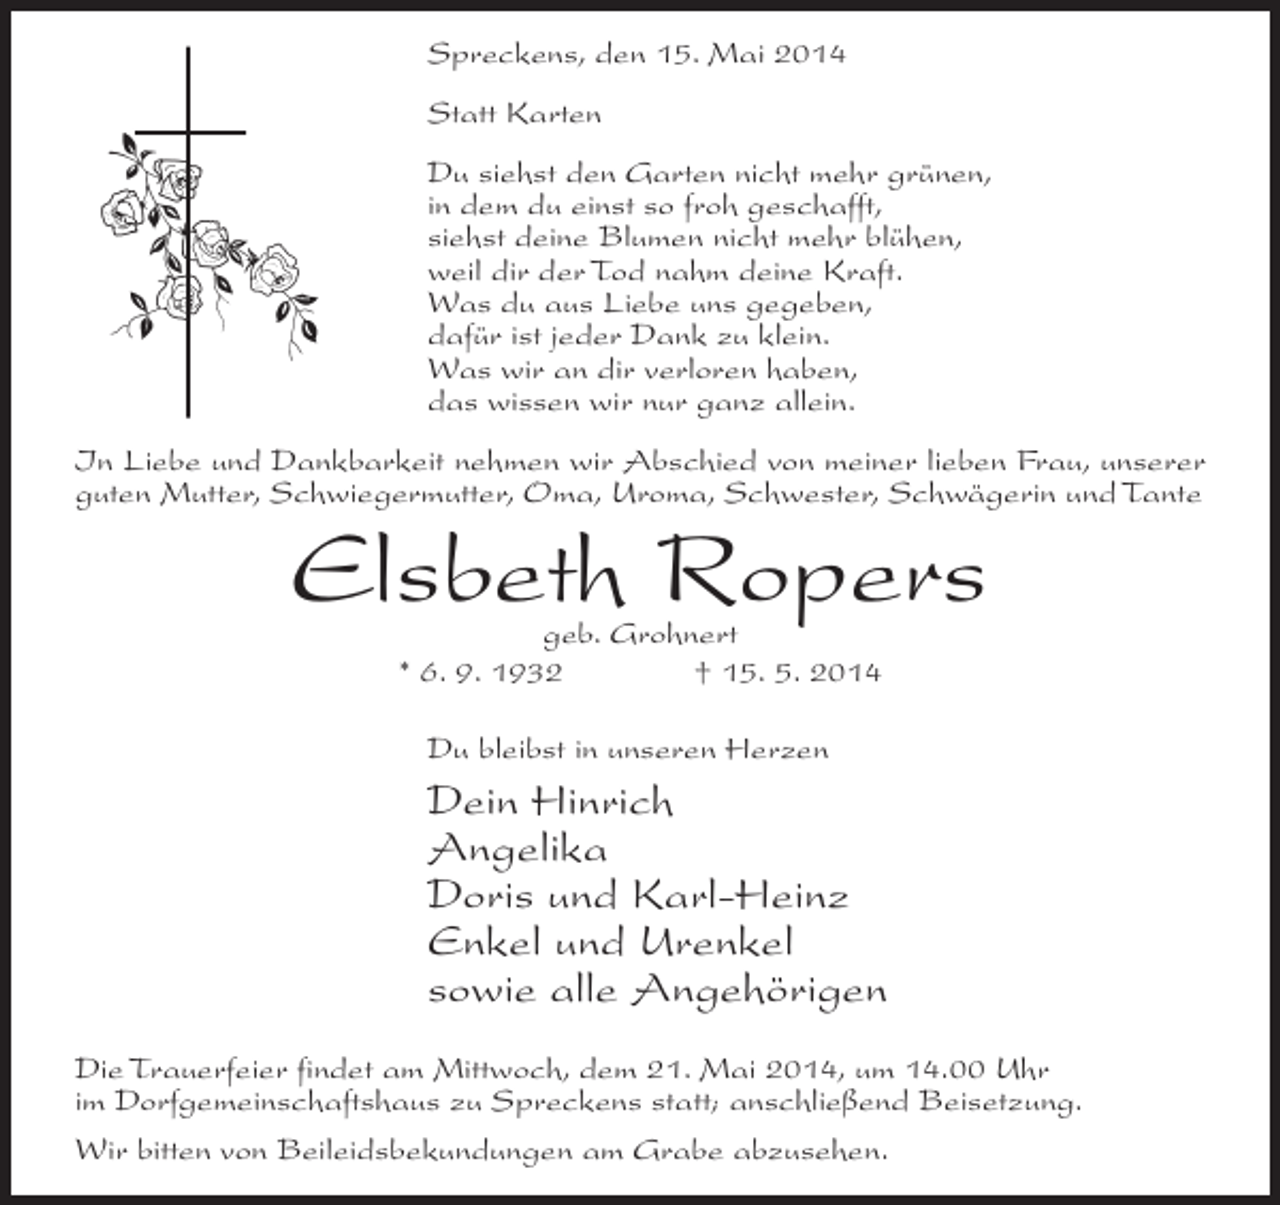 Spreckens, den 15. Mai 2014
Statt Karten
Du siehst den Garten nicht mehr grünen,
in dem du einst so froh geschafft,
siehst deine Blumen nicht mehr blühen,
weil dir der Tod nahm deine Kraft.
Was du aus Liebe uns gegeben,
dafür ist jeder Dank zu klein.
Was wir an dir verloren haben,
das wissen wir nur ganz allein.
In Liebe und Dankbarkeit nehmen wir Abschied von meiner lieben Frau, unserer
guten Mutter, Schwiegermutter, Oma, Uroma, Schwester, Schwägerin und Tante
Elsbeth Ropers
geb. Grohnert
* 6. 9. 1932 † 15. 5. 2014
Du bleibst in unseren Herzen
Dein Hinrich
Angelika
Doris und Karl-Heinz
Enkel und Urenkel
sowie alle Angehörigen
Die Trauerfeier findet am Mittwoch, dem 21. Mai 2014, um 14.00 Uhr
im Dorfgemeinschaftshaus zu Spreckens statt; anschließend Beisetzung.
Wir bitten von Beileidsbekundungen am Grabe abzusehen.